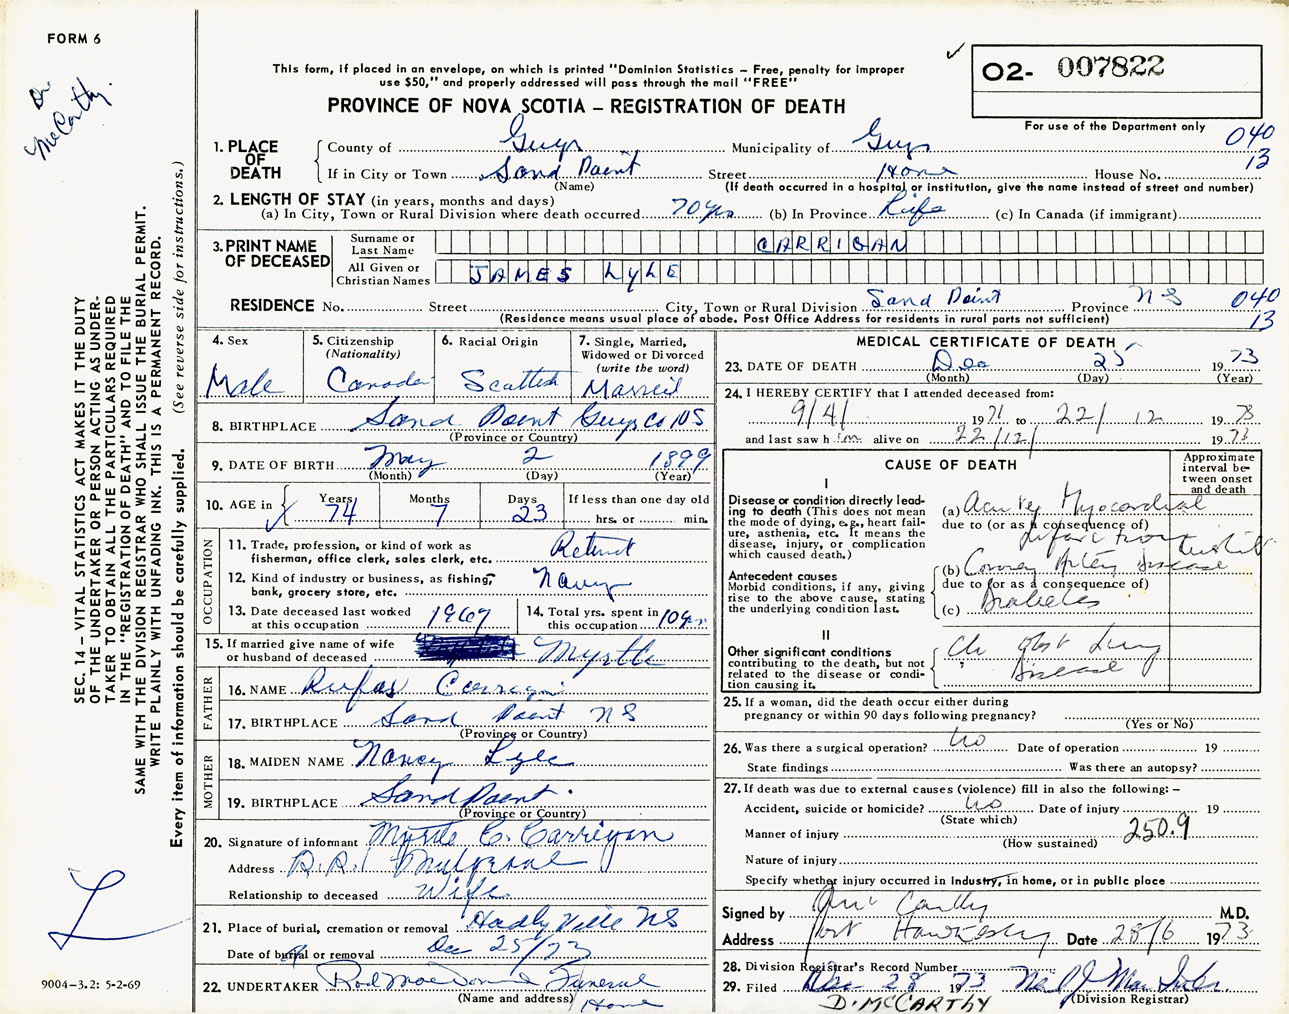 FORM 6
Dr
McCarthy.
This form, if placed in an envelope, on which is printed "Dominion Statistics – Free, penalty for improper
use $50," and properly addressed will pass through the mail "FREE"
PROVINCE OF NOVA SCOTIA – REGISTRATION OF DEATH
O2- 007822
For use of the Department only
040
13
1. PLACE OF DEATH
County of Guys Municipality of Guys
If in City or Town Sand Point Street Home House No.
(Name) (If death occurred in a hospital or institution, give the name instead of street and number)
2. LENGTH OF STAY (in years, months and days)
(a) In City, Town or Rural Division where death occurred 70 yrs (b) In Province Life (c) In Canada (if immigrant)
3. PRINT NAME OF DECEASED
Surname or Last Name CARRIGAN
All Given or Christian Names JAMES LYLE
RESIDENCE No. Street City, Town or Rural Division Sand Point Province N S 040
(Residence means usual place of abode. Post Office Address for residents in rural parts not sufficient) 13
4. Sex
Male
5. Citizenship
(Nationality)
Canada
6. Racial Origin
Scottish
7. Single, Married,
Widowed or Divorced
(write the word)
Married
8. BIRTHPLACE Sand Point Guys Co NS
(Province or Country)
9. DATE OF BIRTH May 2 1899
(Month) (Day) (Year)
10. AGE in Years Months Days If less than one day old
74 7 23 hrs. or min.
OCCUPATION
11. Trade, profession, or kind of work as
fisherman, office clerk, sales clerk, etc. Retired
12. Kind of industry or business, as fishing,
bank, grocery store, etc. Navy
13. Date deceased last worked
at this occupation 1967
14. Total yrs. spent in
this occupation 10 yrs
15. If married give name of wife
or husband of deceased Myrtle
FATHER
16. NAME Rufas Carrigan
17. BIRTHPLACE Sand Point N S
(Province or Country)
MOTHER
18. MAIDEN NAME Nancy Lyle
19. BIRTHPLACE Sand Point.
(Province or Country)
20. Signature of informant Myrtle C. Carrigan
Address R.R.1 Mulgrave
Relationship to deceased Wife
21. Place of burial, cremation or removal Hadleyville NS
Date of burial or removal Dec 25/73
22. UNDERTAKER Rod MacDonald Funeral
(Name and address) Home
MEDICAL CERTIFICATE OF DEATH
23. DATE OF DEATH Dec 25 1973
(Month) (Day) (Year)
24. I HEREBY CERTIFY that I attended deceased from:
9/4/ 1971 to 22/12 1973
and last saw him alive on 22/12/ 1973
CAUSE OF DEATH
Approximate
interval be-
tween onset
and death
I
Disease or condition directly lead-
ing to death (This does not mean
the mode of dying, e.g., heart fail-
ure, asthenia, etc. It means the
disease, injury, or complication
which caused death.)
(a) Acute Myocardial
due to (or as a consequence of)
Infarction
Antecedent causes
Morbid conditions, if any, giving
rise to the above cause, stating
the underlying condition last.
(b) Coronary Artery Disease
due to (or as a consequence of)
(c) Diabetes
II
Other significant conditions
contributing to the death, but not
related to the disease or condi-
tion causing it.
Ch Obst Lung
Disease
25. If a woman, did the death occur either during
pregnancy or within 90 days following pregnancy?
(Yes or No)
26. Was there a surgical operation? No Date of operation 19
State findings Was there an autopsy?
27. If death was due to external causes (violence) fill in also the following: –
Accident, suicide or homicide? No Date of injury 19
(State which)
Manner of injury 250.9
(How sustained)
Nature of injury
Specify whether injury occurred in industry, in home, or in public place
Signed by McCarthy M.D.
Address Port Hawkesbury Date 28/6 1973
28. Division Registrar's Record Number
29. Filed Dec 28 1973 Neil J
(Division Registrar)
D. McCARTHY
SEC. 14 – VITAL STATISTICS ACT MAKES IT THE DUTY
OF THE UNDERTAKER OR PERSON ACTING AS UNDER-
TAKER TO OBTAIN ALL THE PARTICULARS REQUIRED
IN THE "REGISTRATION OF DEATH" AND TO FILE THE
SAME WITH THE DIVISION REGISTRAR WHO SHALL ISSUE THE BURIAL PERMIT.
WRITE PLAINLY WITH UNFADING INK. THIS IS A PERMANENT RECORD.
Every item of information should be carefully supplied. (See reverse side for instructions.)
L
9004-3.2: 5-2-69